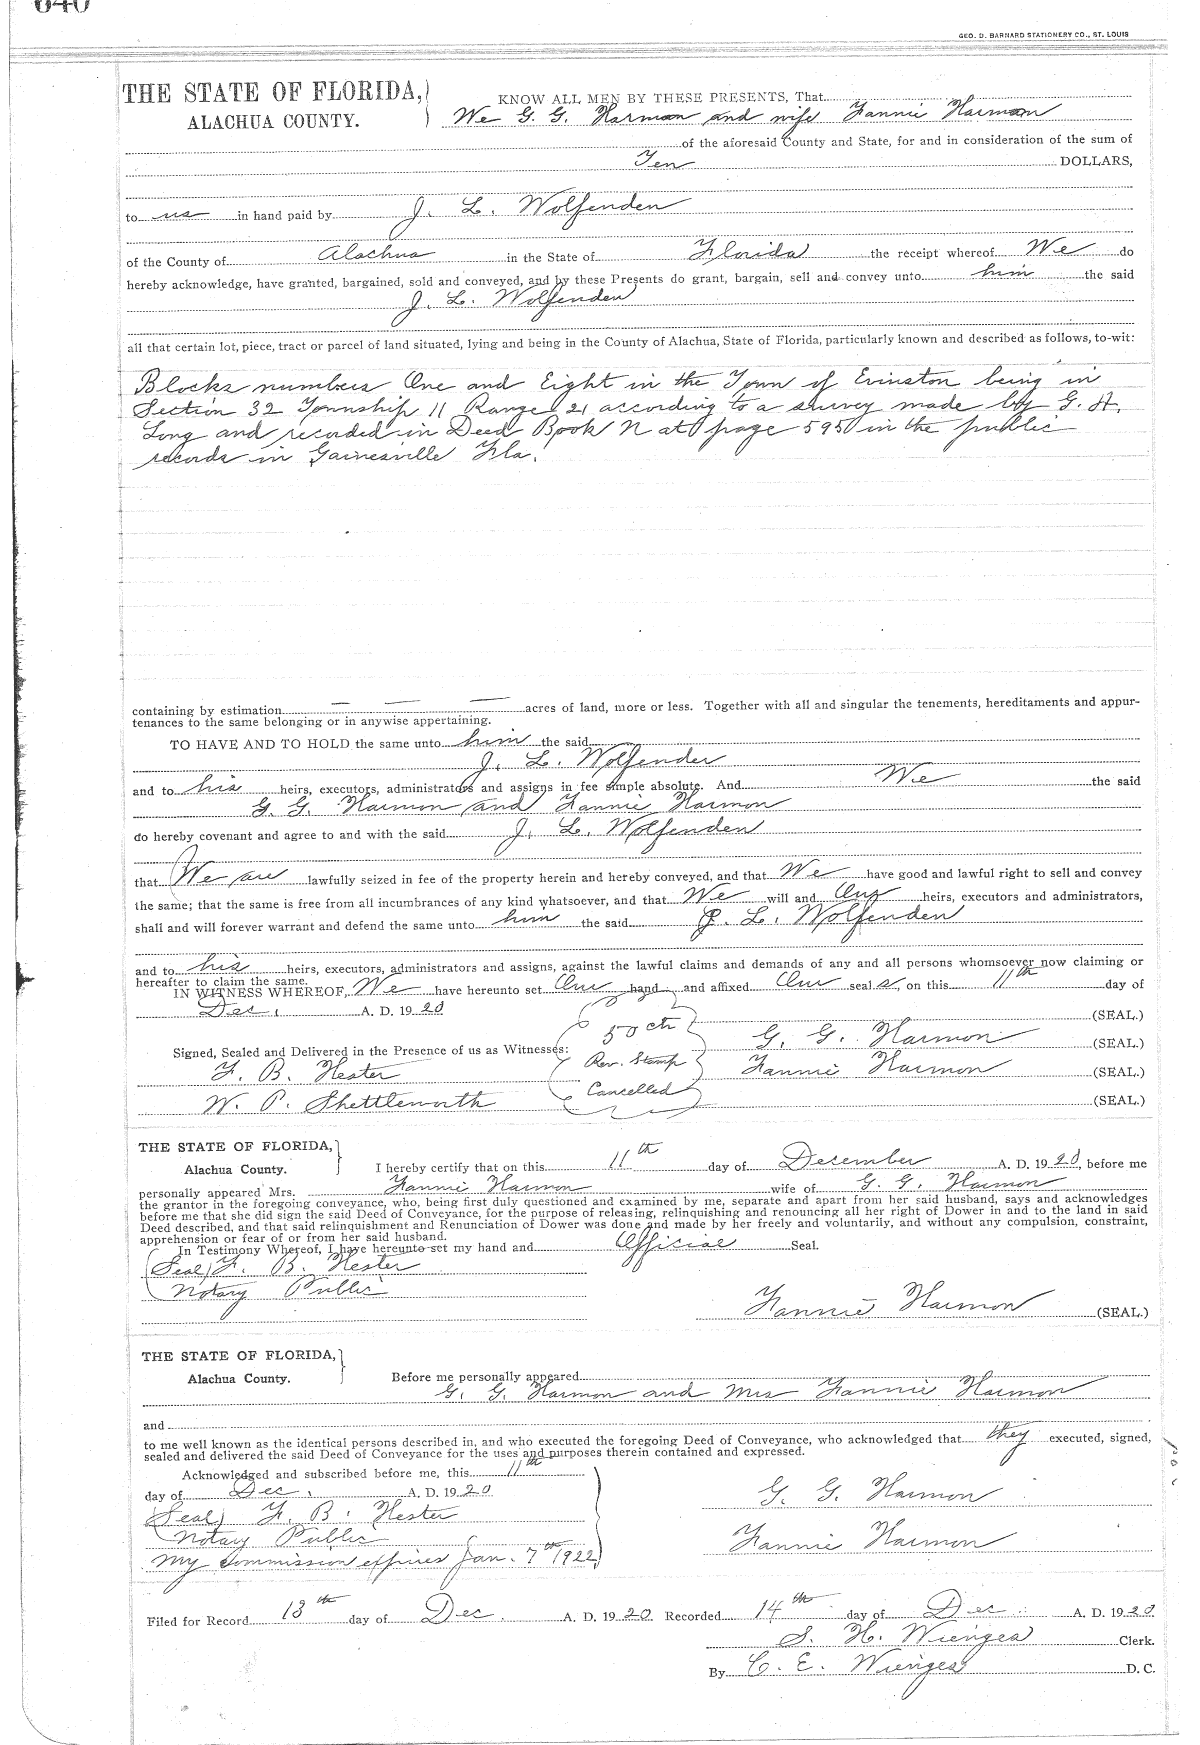 640
GEO. D. BARNARD STATIONERY CO., ST. LOUIS
THE STATE OF FLORIDA,
ALACHUA COUNTY.
KNOW ALL MEN BY THESE PRESENTS, That
We G. G. Harmon and wife Fannie Harmon
of the aforesaid County and State, for and in consideration of the sum of
Ten DOLLARS,
to us in hand paid by J. L. Wolfenden
of the County of Alachua in the State of Florida the receipt whereof We do
hereby acknowledge, have granted, bargained, sold and conveyed, and by these Presents do grant, bargain, sell and convey unto him the said
J. L. Wolfenden
all that certain lot, piece, tract or parcel of land situated, lying and being in the County of Alachua, State of Florida, particularly known and described as follows, to-wit:
Blocks numbers One and Eight in the Town of Evinston being in
Section 32 Township 11 Range 21 according to a survey made by G. H.
Long and recorded in Deed Book N at page 595 in the public
records in Gainesville Fla.
containing by estimation — — — acres of land, more or less. Together with all and singular the tenements, hereditaments and appur-
tenances to the same belonging or in anywise appertaining.
TO HAVE AND TO HOLD the same unto him the said
J. L. Wolfender
and to his heirs, executors, administrators and assigns in fee simple absolute. And We the said
G. G. Harmon and Fannie Harmon
do hereby covenant and agree to and with the said J. L. Wolfenden
that We are lawfully seized in fee of the property herein and hereby conveyed, and that We have good and lawful right to sell and convey
the same; that the same is free from all incumbrances of any kind whatsoever, and that We will and Our heirs, executors and administrators,
shall and will forever warrant and defend the same unto him the said J. L. Wolfenden
and to his heirs, executors, administrators and assigns, against the lawful claims and demands of any and all persons whomsoever now claiming or
hereafter to claim the same.
IN WITNESS WHEREOF, We have hereunto set Our hand and affixed Our seal s, on this 11th day of
Dec. A. D. 1920
(SEAL.)
50 cts
G. G. Harmon (SEAL.)
Signed, Sealed and Delivered in the Presence of us as Witnesses:
Rev. Stamp
F. B. Hester
Fannie Harmon (SEAL.)
Cancelled
W. P. Shettleworth
(SEAL.)
THE STATE OF FLORIDA,
Alachua County.
I hereby certify that on this 11th day of December A. D. 1920, before me
personally appeared Mrs. Fannie Harmon wife of G. G. Harmon
the grantor in the foregoing conveyance, who, being first duly questioned and examined by me, separate and apart from her said husband, says and acknowledges
before me that she did sign the said Deed of Conveyance, for the purpose of releasing, relinquishing and renouncing all her right of Dower in and to the land in said
Deed described, and that said relinquishment and Renunciation of Dower was done and made by her freely and voluntarily, and without any compulsion, constraint,
apprehension or fear of or from her said husband.
In Testimony Whereof, I have hereunto set my hand and Official Seal.
(Seal) F. B. Hester
Notary Public
Fannie Harmon (SEAL.)
THE STATE OF FLORIDA,
Alachua County.
Before me personally appeared
G. G. Harmon and Mrs Fannie Harmon
and
to me well known as the identical persons described in, and who executed the foregoing Deed of Conveyance, who acknowledged that they executed, signed,
sealed and delivered the said Deed of Conveyance for the uses and purposes therein contained and expressed.
Acknowledged and subscribed before me, this 11th
day of Dec. A. D. 1920
G. G. Harmon
(Seal) F. B. Hester
Notary Public
Fannie Harmon
My Commission expires Jan. 7th 1922
Filed for Record 13th day of Dec. A. D. 1920 Recorded 14th day of Dec. A. D. 1920
S. H. Wienges Clerk.
By C. E. Wienges D. C.